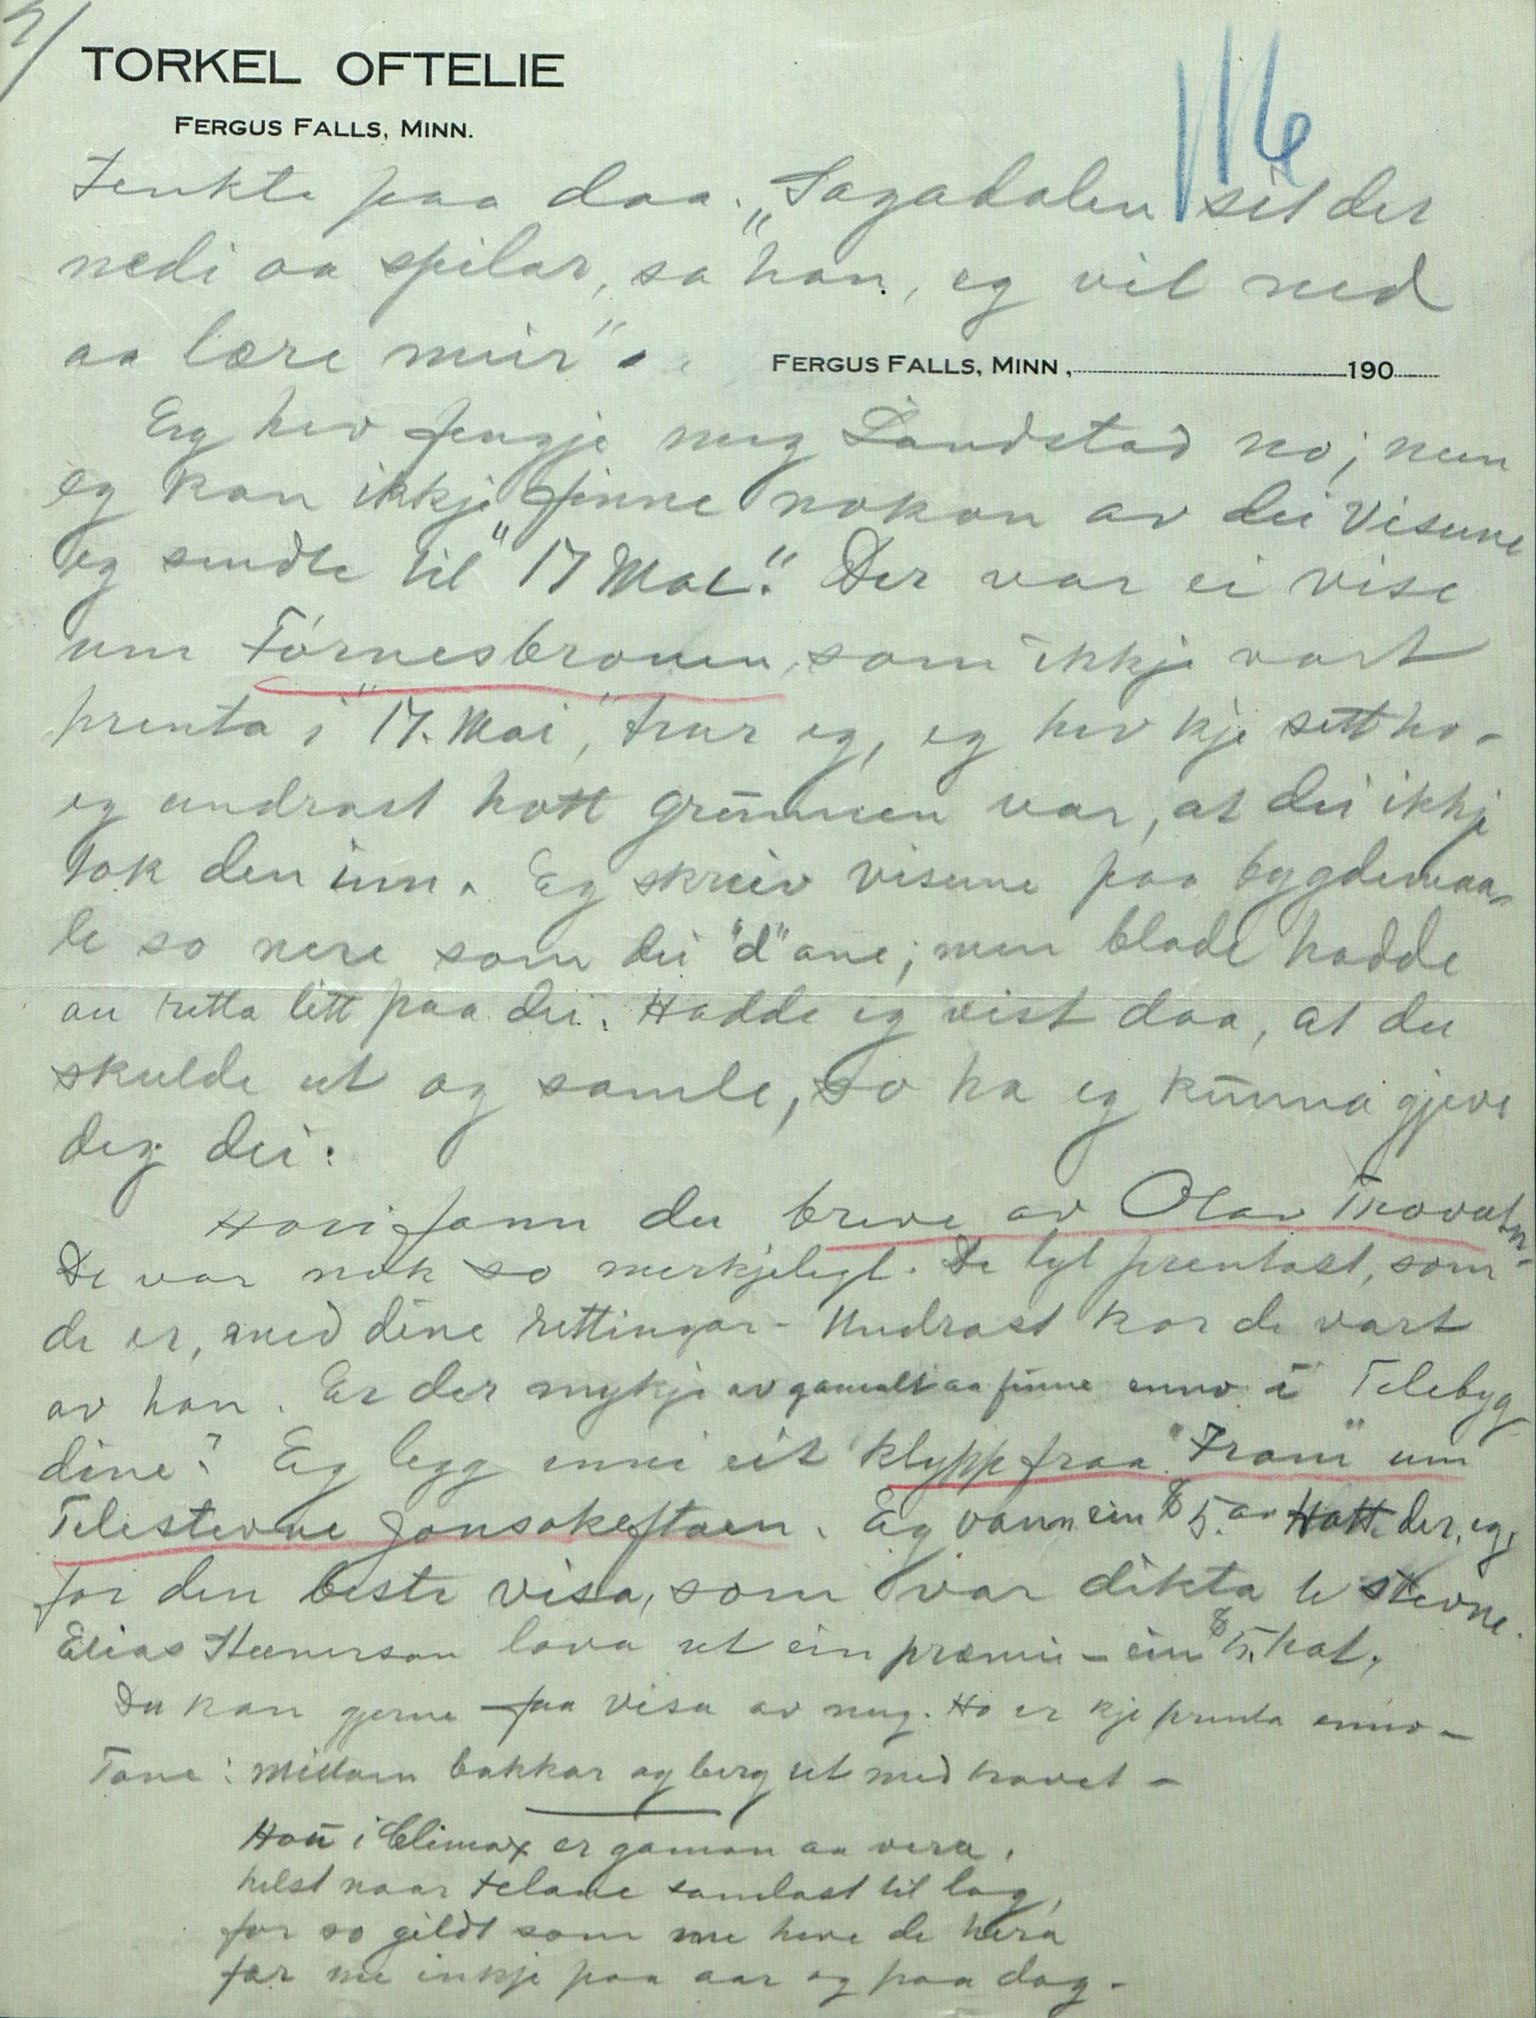 2/
TORKEL OFTELIE
FERGUS FALLS, MINN.
116
Tenkte paa daa. „Sagadalen sit der
nedi aa spilar, sa han, eg vil ned
aa lære meir".
FERGUS FALLS, MINN., 190
Eg hev fengje meg Landstad no; men
eg kan ikkje finne nokon av dei Visune
eg sendte til "17 Mai". Der var ei vise
um Förnesbronen, som ikkje vart
prenta i "17. Mai", trur eg, eg hev kje sett ho-
eg undrast hott grunnen var, at dei ikkje
tok den inn. Eg skreiv visune paa bygdemaa-
le so nere som dei "d" ane; men blade hadde
au retta litt paa dei. Hadde eg vist daa, at du
skulde ut og samle, so ha eg kunna gjeve
deg dei.
Hori fann du breve av Olav Trovatn
De var nok so merkjelegt. De lyt prentast, som
de er, med dine rettingar - Undrast kor de vart
av han. Er der mykje av gamalt aa finne enno i Telebyg
dine? Eg legg inni eit klypp fraa "Fram" um
Telestevne Jonsokeftaen. Eg vann ein $5. av Hatt der, eg,
for den beste visa, som var dikta te stevne.
Elias Steenerson lova ut ein præmie - ein $5. hat.
Du kan gjerne faa visa av meg. Ho er kje prenta enno -
Tone: Millom bakkar og berg ut med havet -
Hou i Climax er gaman aa vera,
helst naar telane samlast til lag,
for so gildt som me heve de hera
fær me inkje paa aar og paa dag -